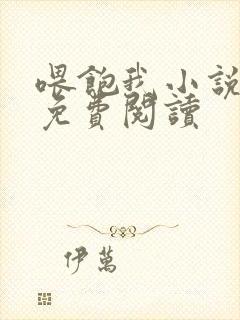 喂飽我小說
免費閱讀
伊萬